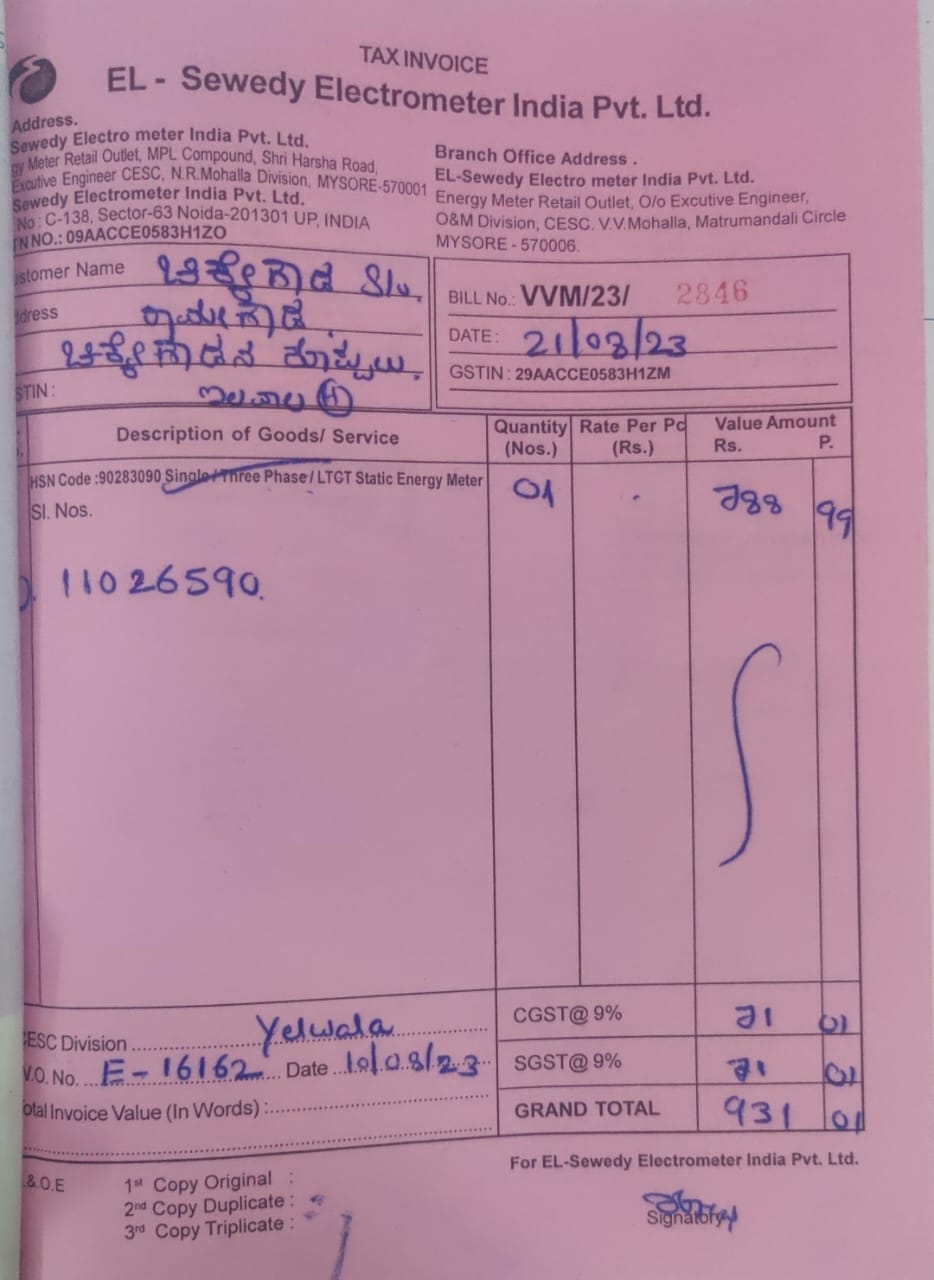 TAX INVOICE
EL - Sewedy Electrometer India Pvt. Ltd.
Address.
Sewedy Electro meter India Pvt. Ltd.
gy Meter Retail Outlet, MPL Compound, Shri Harsha Road,
Excutive Engineer CESC, N.R.Mohalla Division, MYSORE-570001
Sewedy Electrometer India Pvt. Ltd.
No : C-138, Sector-63 Noida-201301 UP, INDIA
TN NO.: 09AACCE0583H1ZO
Branch Office Address .
EL-Sewedy Electro meter India Pvt. Ltd.
Energy Meter Retail Outlet, O/o Excutive Engineer,
O&M Division, CESC. V.V.Mohalla, Matrumandali Circle
MYSORE - 570006.
ustomer Name ಚಿಕ್ಕೇಗೌಡ S/o.
dress ರಾಮೇಗೌಡ
ಚಿಕ್ಕೇಗೌಡನ ಕೊಪ್ಪಲು.
STIN : ಇಲವಾಲ (H)
BILL No.: VVM/23/ 2846
DATE : 21/08/23
GSTIN : 29AACCE0583H1ZM
Description of Goods/ Service Quantity (Nos.) Rate Per Pc (Rs.) Value Amount Rs. P.
HSN Code :90283090 Single / Three Phase / LTCT Static Energy Meter 01 788 99
Sl. Nos.
11026590.
CGST@ 9% 71 01
CESC Division Yelwala
SGST@ 9% 71 01
V.O. No. E-16162 Date 10/08/23
GRAND TOTAL 931 01
otal Invoice Value (In Words) :
For EL-Sewedy Electrometer India Pvt. Ltd.
.&.O.E
1st Copy Original :
2nd Copy Duplicate :
3rd Copy Triplicate :
Signatory